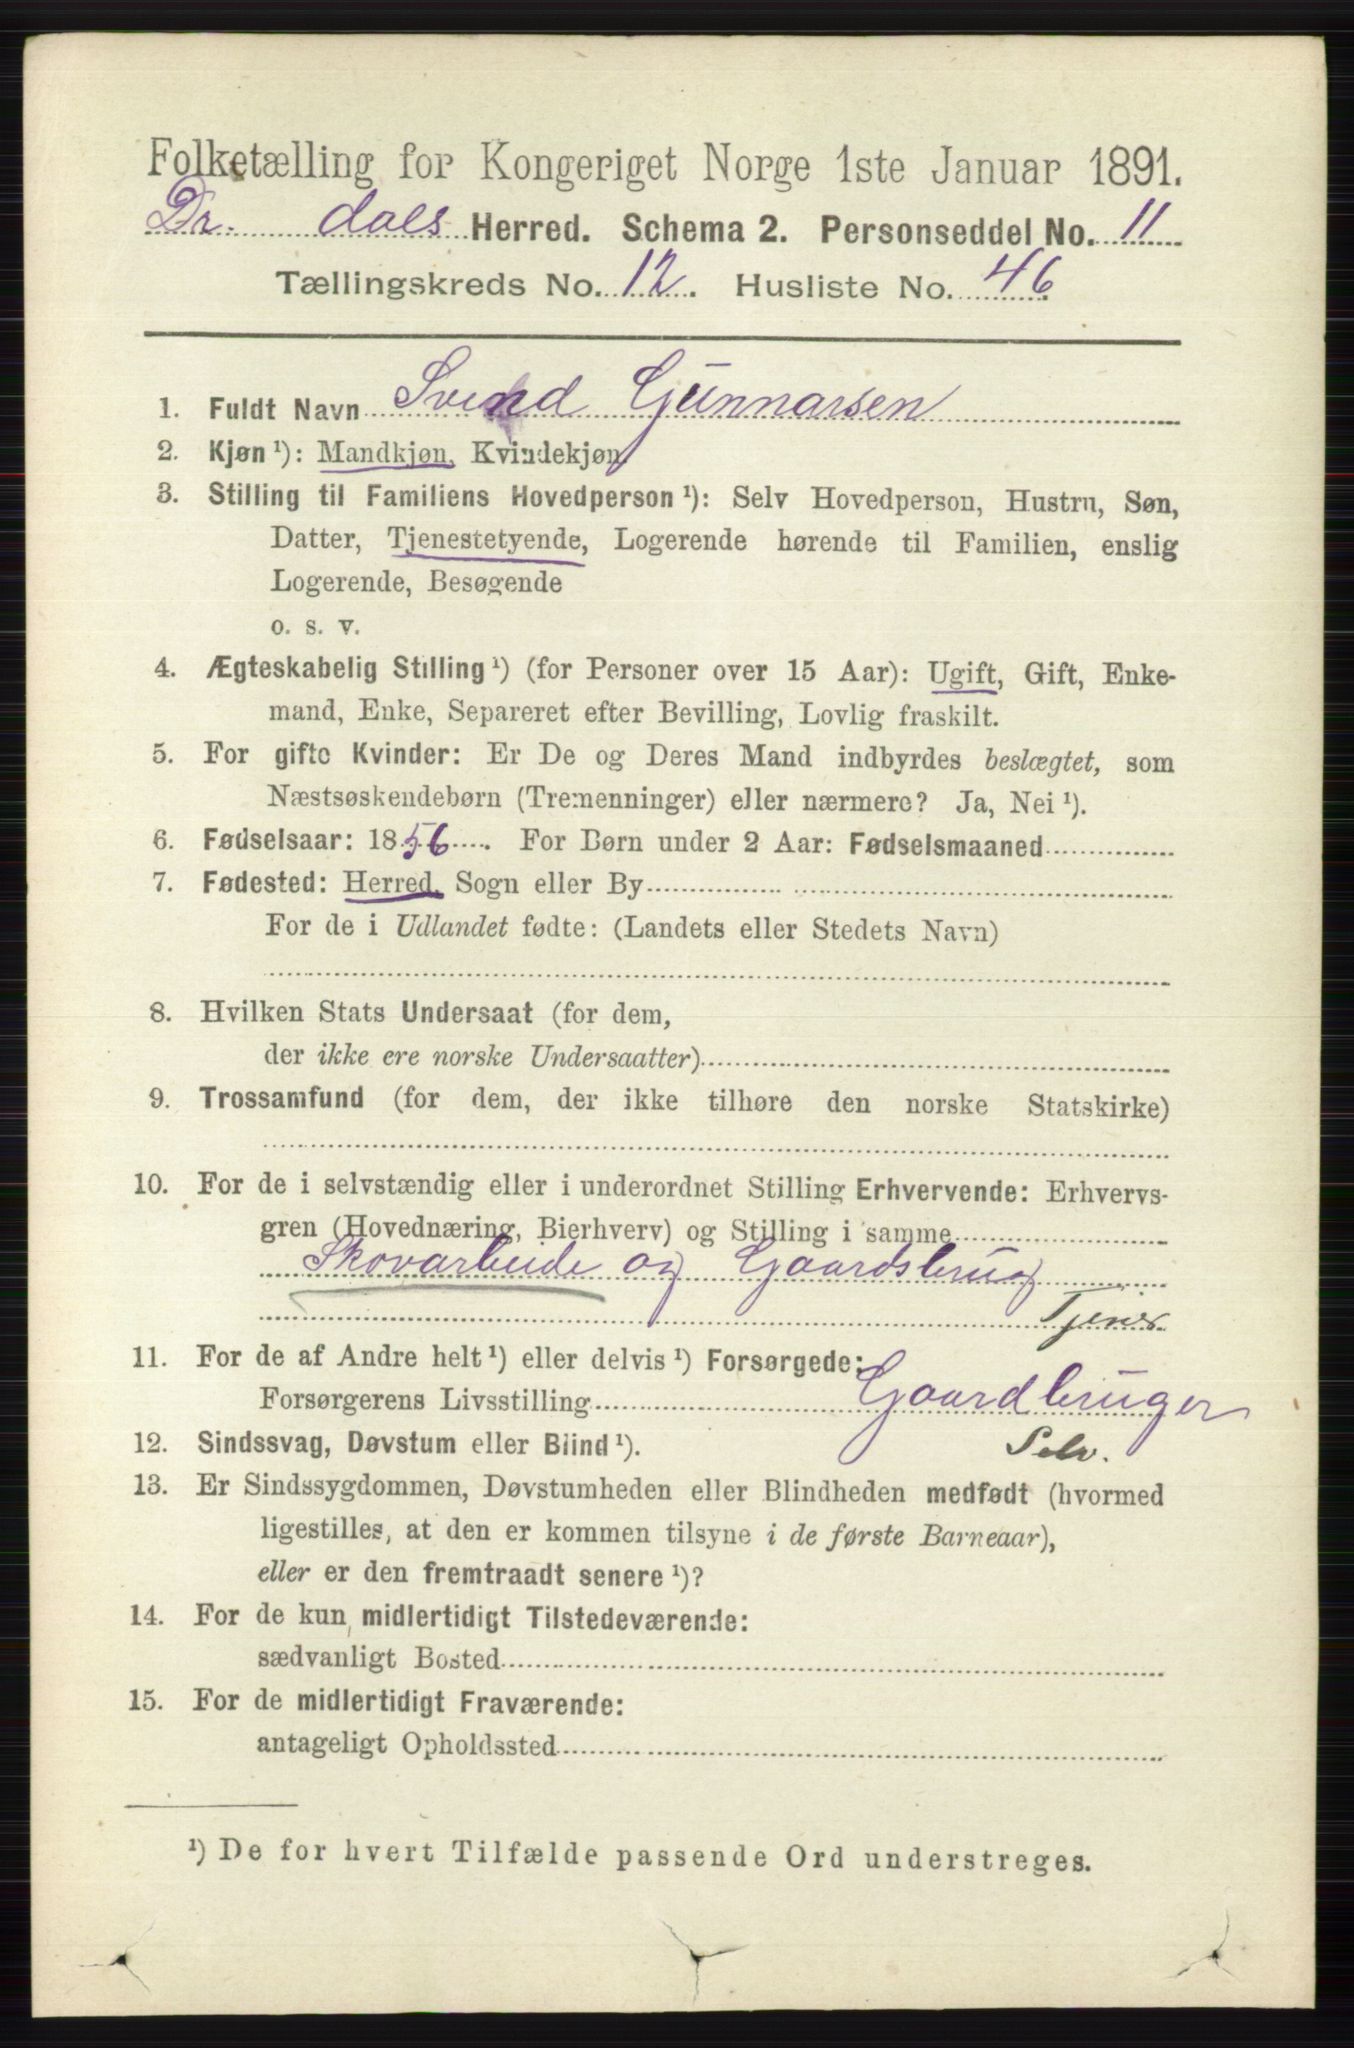 Folketælling for Kongeriget Norge 1ste Januar 1891.
Dr. dals Herred. Schema 2. Personseddel No. 11
Tællingskreds No. 12. Husliste No. 46
1. Fuldt Navn Svend Gunnarsen
2. Kjøn ¹): Mandkjøn, Kvindekjøn.
3. Stilling til Familiens Hovedperson ¹): Selv Hovedperson, Hustru, Søn,
Datter, Tjenestetyende, Logerende hørende til Familien, enslig
Logerende, Besøgende
o. s. v.
4. Ægteskabelig Stilling ¹) (for Personer over 15 Aar): Ugift, Gift, Enke-
mand, Enke, Separeret efter Bevilling, Lovlig fraskilt.
5. For gifte Kvinder: Er De og Deres Mand indbyrdes beslægtet, som
Næstsøskendebørn (Tremenninger) eller nærmere? Ja, Nei ¹).
6. Fødselsaar: 1856. For Børn under 2 Aar: Fødselsmaaned
7. Fødested: Herred, Sogn eller By
For de i Udlandet fødte: (Landets eller Stedets Navn)
8. Hvilken Stats Undersaat (for dem,
der ikke ere norske Undersaatter)
9. Trossamfund (for dem, der ikke tilhøre den norske Statskirke)
10. For de i selvstændig eller i underordnet Stilling Erhvervende: Erhvervs-
gren (Hovednæring, Bierhverv) og Stilling i samme
Skovarbeide og Gaardsbrug
Tjener
11. For de af Andre helt ¹) eller delvis ¹) Forsørgede:
Forsørgerens Livsstilling Gaardbruger
12. Sindssvag, Døvstum eller Blind ¹). Selv.
13. Er Sindssygdommen, Døvstumheden eller Blindheden medfødt (hvormed
ligestilles, at den er kommen tilsyne i de første Barneaar),
eller er den fremtraadt senere ¹)?
14. For de kun midlertidigt Tilstedeværende:
sædvanligt Bosted
15. For de midlertidigt Fraværende:
antageligt Opholdssted
¹) De for hvert Tilfælde passende Ord understreges.